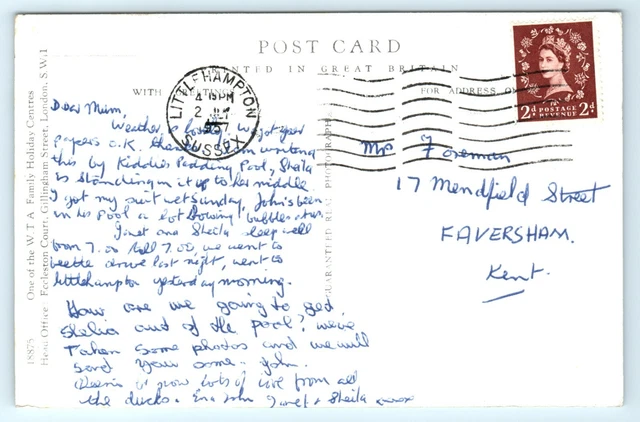 POST CARD
PRINTED IN GREAT BRITAIN
WITH GREETINGS
FOR ADDRESS ONLY
LITTLEHAMPTON
SUSSEX
4 15 PM
2
1957
2d POSTAGE REVENUE 2d
18875
One of the W.T.A Family Holiday Centres
Head Office: Eccleston Court, Gillingham Street, London, S.W.1
GUARANTEED REAL PHOTOGRAPH
Dear Mum,
Weather is lovely we got your
papers O.K. thanks am writing
this by Kiddies Paddling Pool, Sheila
is standing in it up to her middle
I got my suit wet Sunday, John's been
in his pool a lot blowing bubbles at us.
Janet and Sheila sleep well
from 7.00 till 7.00 we went to
beetle drive last night, went to
littlehampton yesterday morning.
How are we going to get
Shelia out of the pool? we've
Taken some photos and we will
send you some. John.
lots of love from all
the ducks. Eva John Janet & Sheila xxxx
Mrs Foreman
17 Mendfield Street
FAVERSHAM.
Kent.